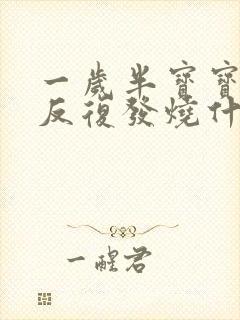 一歲半寶寶
反復發燒什
一醒君